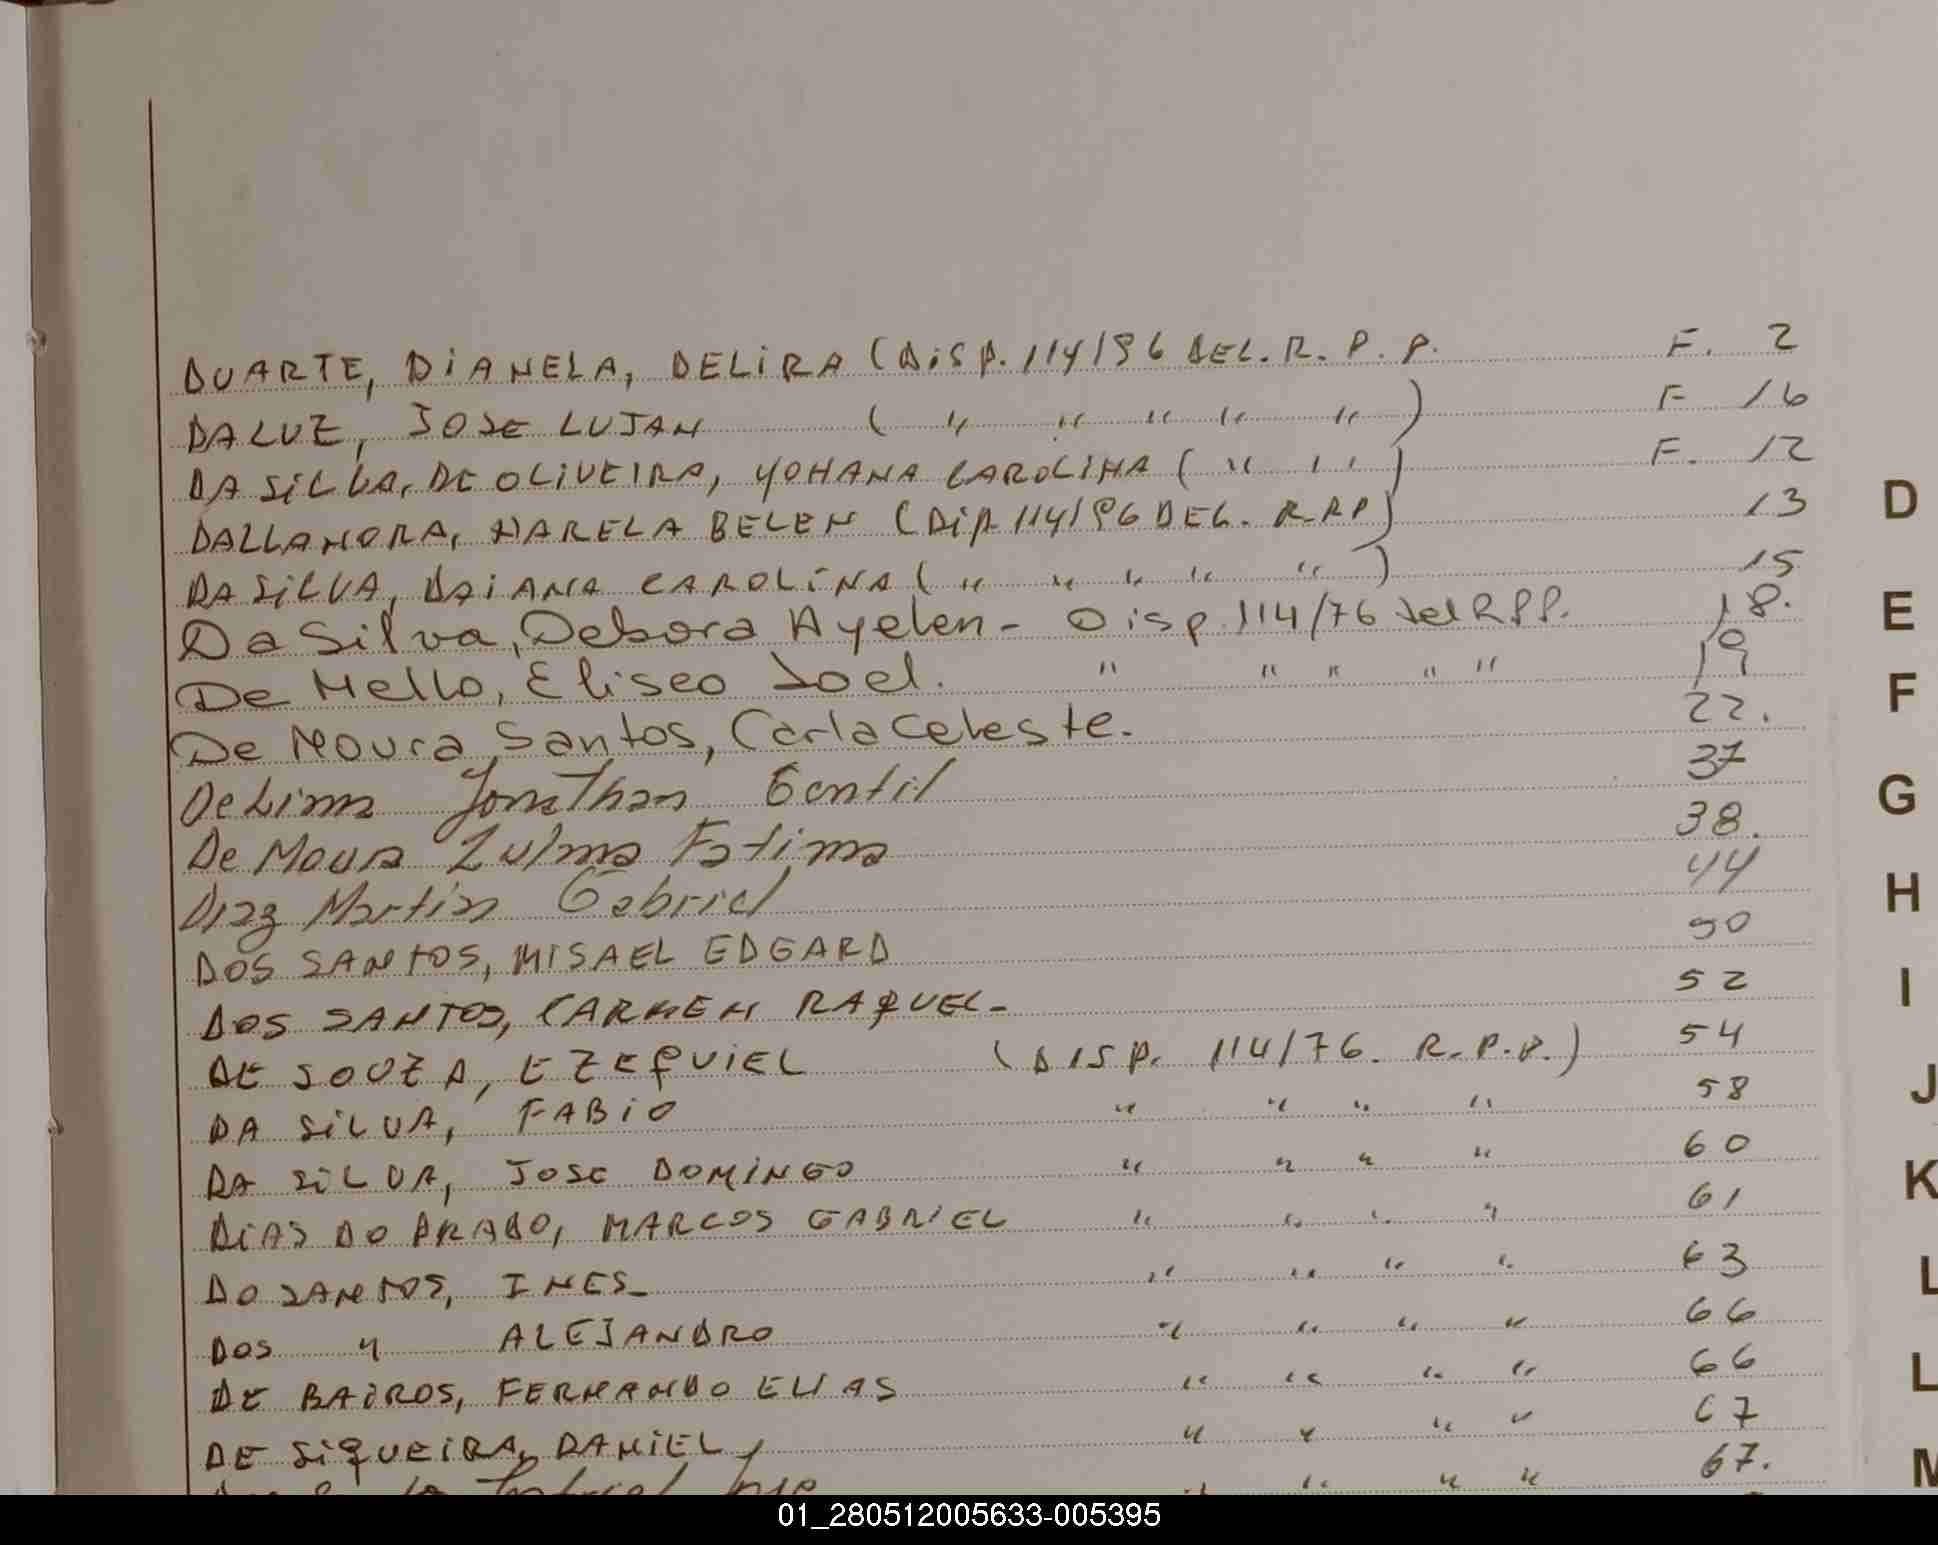 DUARTE, DIANELA, DELIRA (DISP. 114/96 DEL. R. P. P. F. 2
DALUZ, JOSE LUJAN ( " " " " " ) F 16
DA SILVA, DE OLIVEIRA, YOHANA CAROLINA ( " " " ) F. 12
DALLANORA, MARELA BELEN (DIP. 114/96 DEL. R.P.P) 13
DA SILVA, DAIANA CAROLINA ( " " " " " ) 15
Da Silva, Debora Ayelen - Disp. 114/76 del RPP. 18.
De Mello, Eliseo Joel. " " " " " 19
De Moura Santos, Carla Celeste. 22.
De Lima Jonathan Gentil 37
De Moura Zulma Fatima 38.
Diaz Martin Gabriel 44
DOS SANTOS, MISAEL EDGARD 50
DOS SANTOS, CARMEN RAQUEL- 52
DE SOUZA, EZEQUIEL (DISP. 114/76. R.P.P.) 54
DA SILVA, FABIO " " " " 58
DA SILVA, JOSE DOMINGO " " " " 60
DIAS DO PRADO, MARCOS GABRIEL " " " " 61
DO SANTOS, INES- " " " " 63
DOS " ALEJANDRO " " " " 66
DE BAIROS, FERNANDO ELIAS " " " " 66
DE SIQUEIRA, DANIEL, " " " " 67
" " " " 67.
D
E
F
G
H
I
J
K
L
L
M
01_280512005633-005395